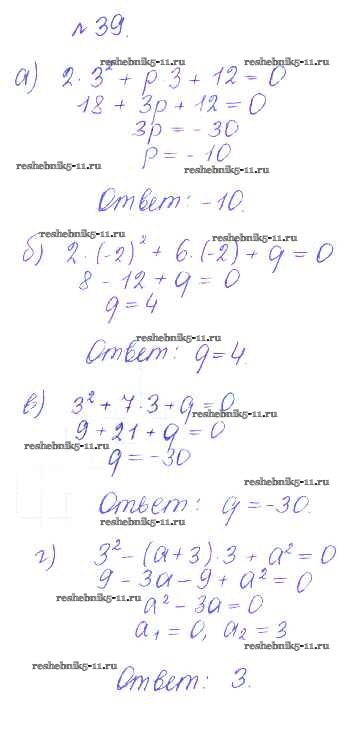 № 39.
reshebnik5-11.ru reshebnik5-11.ru
а) 2·3² + p·3 + 12 = 0
18 + 3p + 12 = 0
3p = -30
reshebnik5-11.ru p = -10 reshebnik5-11.ru
Ответ: -10.
reshebnik5-11.ru reshebnik5-11.ru
б) 2·(-2)² + 6·(-2) + q = 0
8 - 12 + q = 0
q = 4
reshebnik5-11.ru
Ответ: q = 4.
в) 3² + 7·3 + q = 0
reshebnik5-11.ru
9 + 21 + q = 0
reshebnik5-11.ru
q = -30
reshebnik5-11.ru
Ответ: q = -30.
reshebnik5-11.ru
г) 3² - (a + 3)·3 + a² = 0
9 - 3a - 9 + a² = 0
reshebnik5-11.ru
a² - 3a = 0
a₁ = 0, a₂ = 3
reshebnik5-11.ru
reshebnik5-11.ru
Ответ: 3.